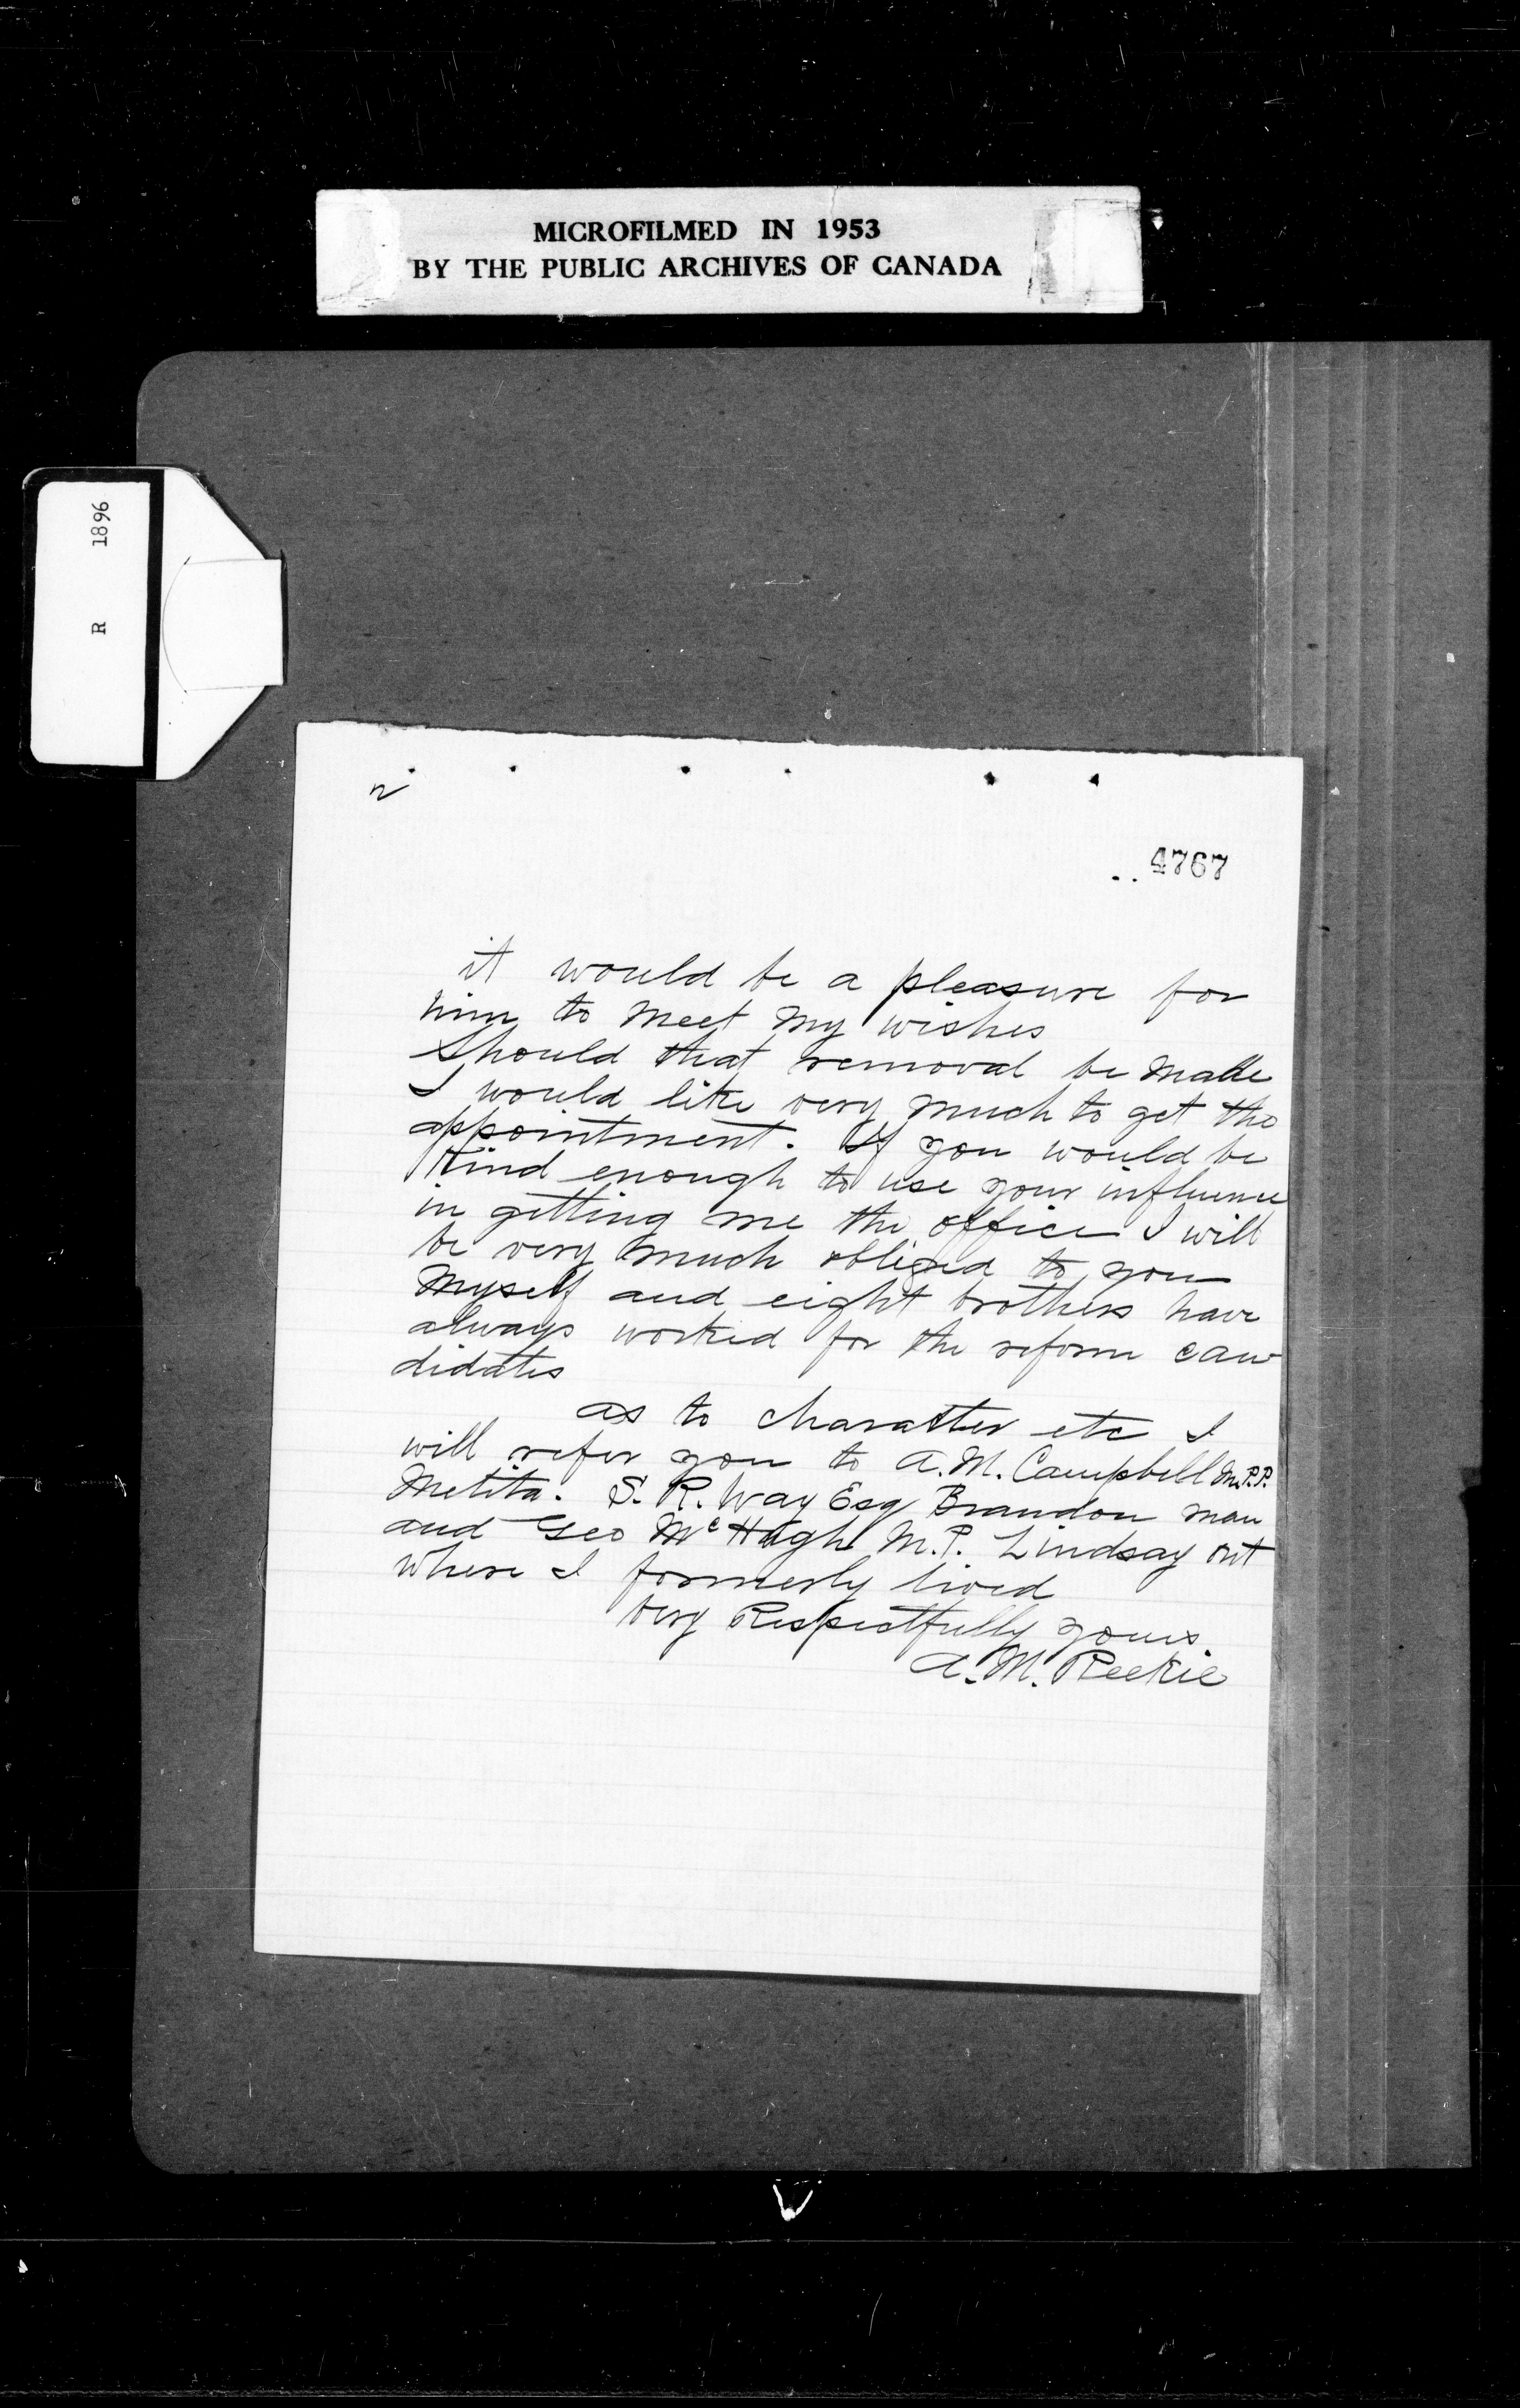 MICROFILMED IN 1953
BY THE PUBLIC ARCHIVES OF CANADA
R 1896
2
4767
it would be a pleasure for
him to meet my wishes
Should that removal be made
I would like very much to get the
appointment. If you would be
Kind enough to use your influence
in getting me the office I will
be very much obliged to you
Myself and eight brothers have
always worked for the reform can
didates
as to charatter etc I
will refer you to A.M. Campbell M.P.P.
Melita. S. R. Way Esq Brandon man
and Geo McHugh M.P. Lindsay ont
where I formerly lived
very Respectfully yours.
A. M. Reekie